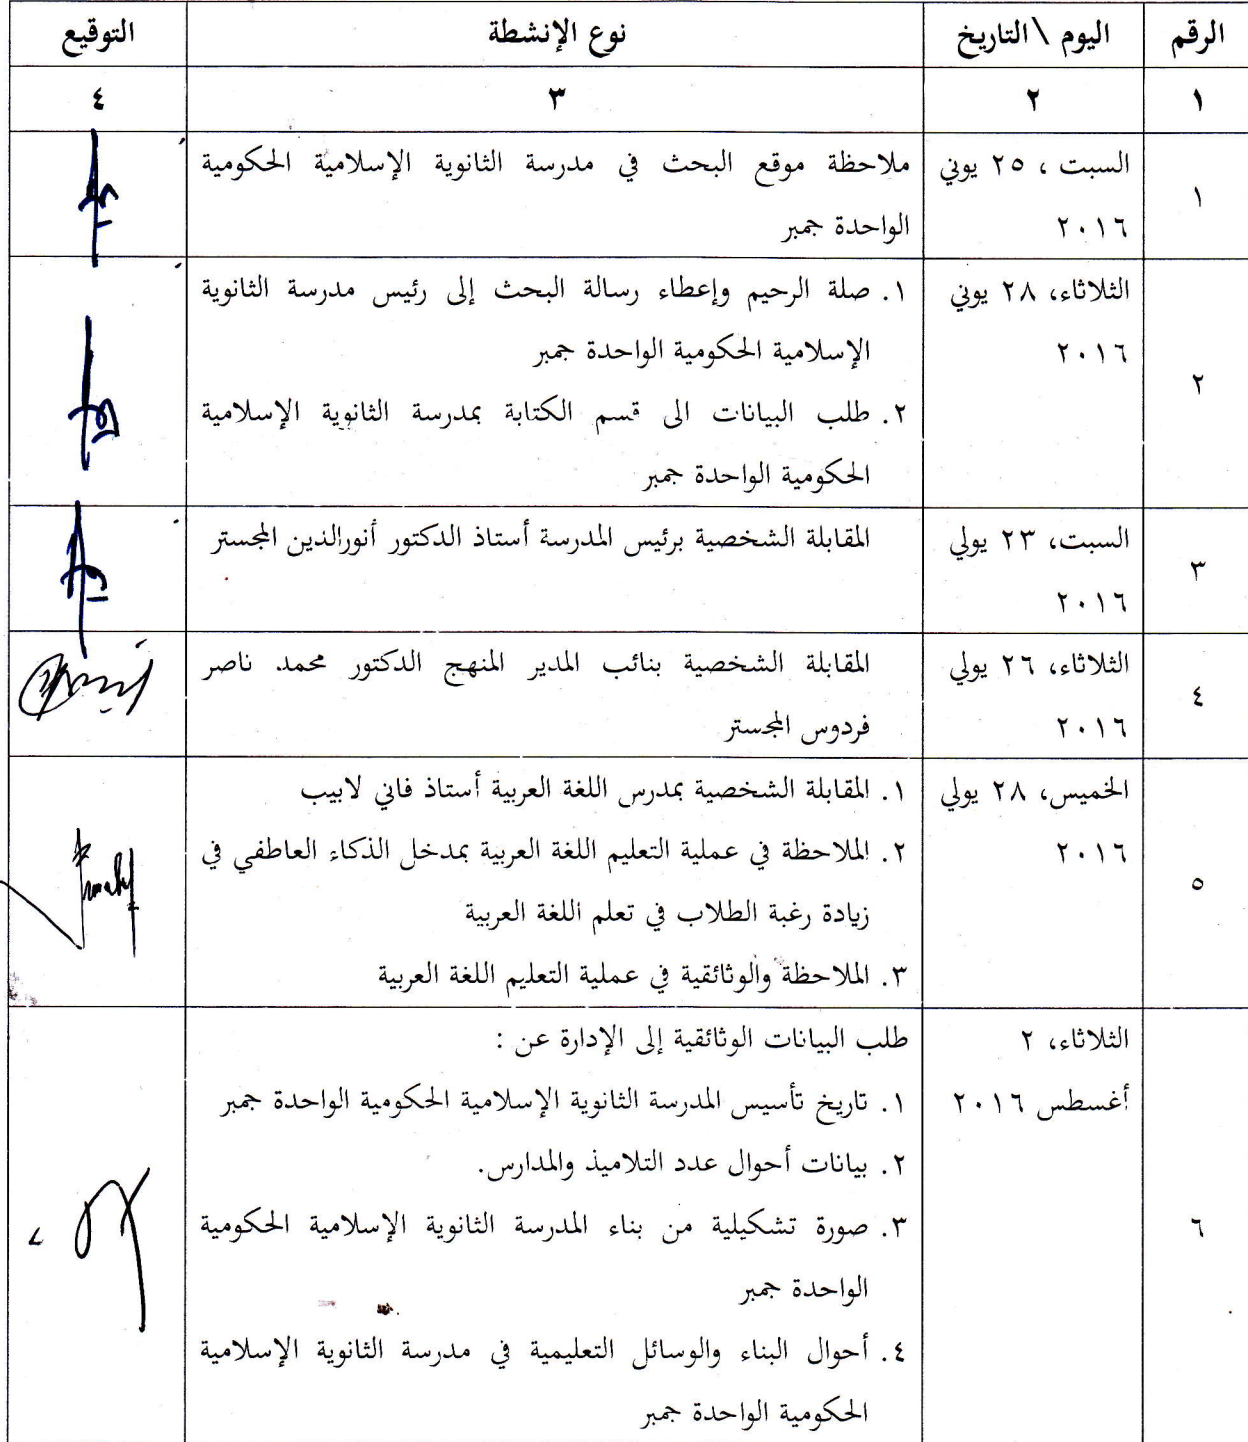 الرقم اليوم \ التاريخ نوع الإنشطة التوقيع
١ ٢ ٣ ٤
١ السبت ، ٢٥ يوني ملاحظة موقع البحث في مدرسة الثانوية الإسلامية الحكومية
٢٠١٦ الواحدة جمبر
٢ الثلاثاء، ٢٨ يوني ١. صلة الرحيم وإعطاء رسالة البحث إلى رئيس مدرسة الثانوية
٢٠١٦ الإسلامية الحكومية الواحدة جمبر
٢. طلب البيانات الى قسم الكتابة بمدرسة الثانوية الإسلامية
الحكومية الواحدة جمبر
٣ السبت، ٢٣ يولي المقابلة الشخصية برئيس المدرسة أستاذ الدكتور أنورالدين المجستر
٢٠١٦
٤ الثلاثاء، ٢٦ يولي المقابلة الشخصية بنائب المدير المنهج الدكتور محمد. ناصر
٢٠١٦ فردوس المجستر
٥ الخميس، ٢٨ يولي ١. المقابلة الشخصية بمدرس اللغة العربية أستاذ فاني لابيب
٢٠١٦ ٢. الملاحظة في عملية التعليم اللغة العربية بمدخل الذكاء العاطفي في
زيادة رغبة الطلاب في تعلم اللغة العربية
٣. الملاحظة والوثائقية في عملية التعليم اللغة العربية
٦ الثلاثاء، ٢ طلب البيانات الوثائقية إلى الإدارة عن :
أغسطس ٢٠١٦ ١. تاريخ تأسيس المدرسة الثانوية الإسلامية الحكومية الواحدة جمبر
٢. بيانات أحوال عدد التلاميذ والمدارس.
٣. صورة تشكيلية من بناء المدرسة الثانوية الإسلامية الحكومية
الواحدة جمبر
٤. أحوال البناء والوسائل التعليمية في مدرسة الثانوية الإسلامية
الحكومية الواحدة جمبر